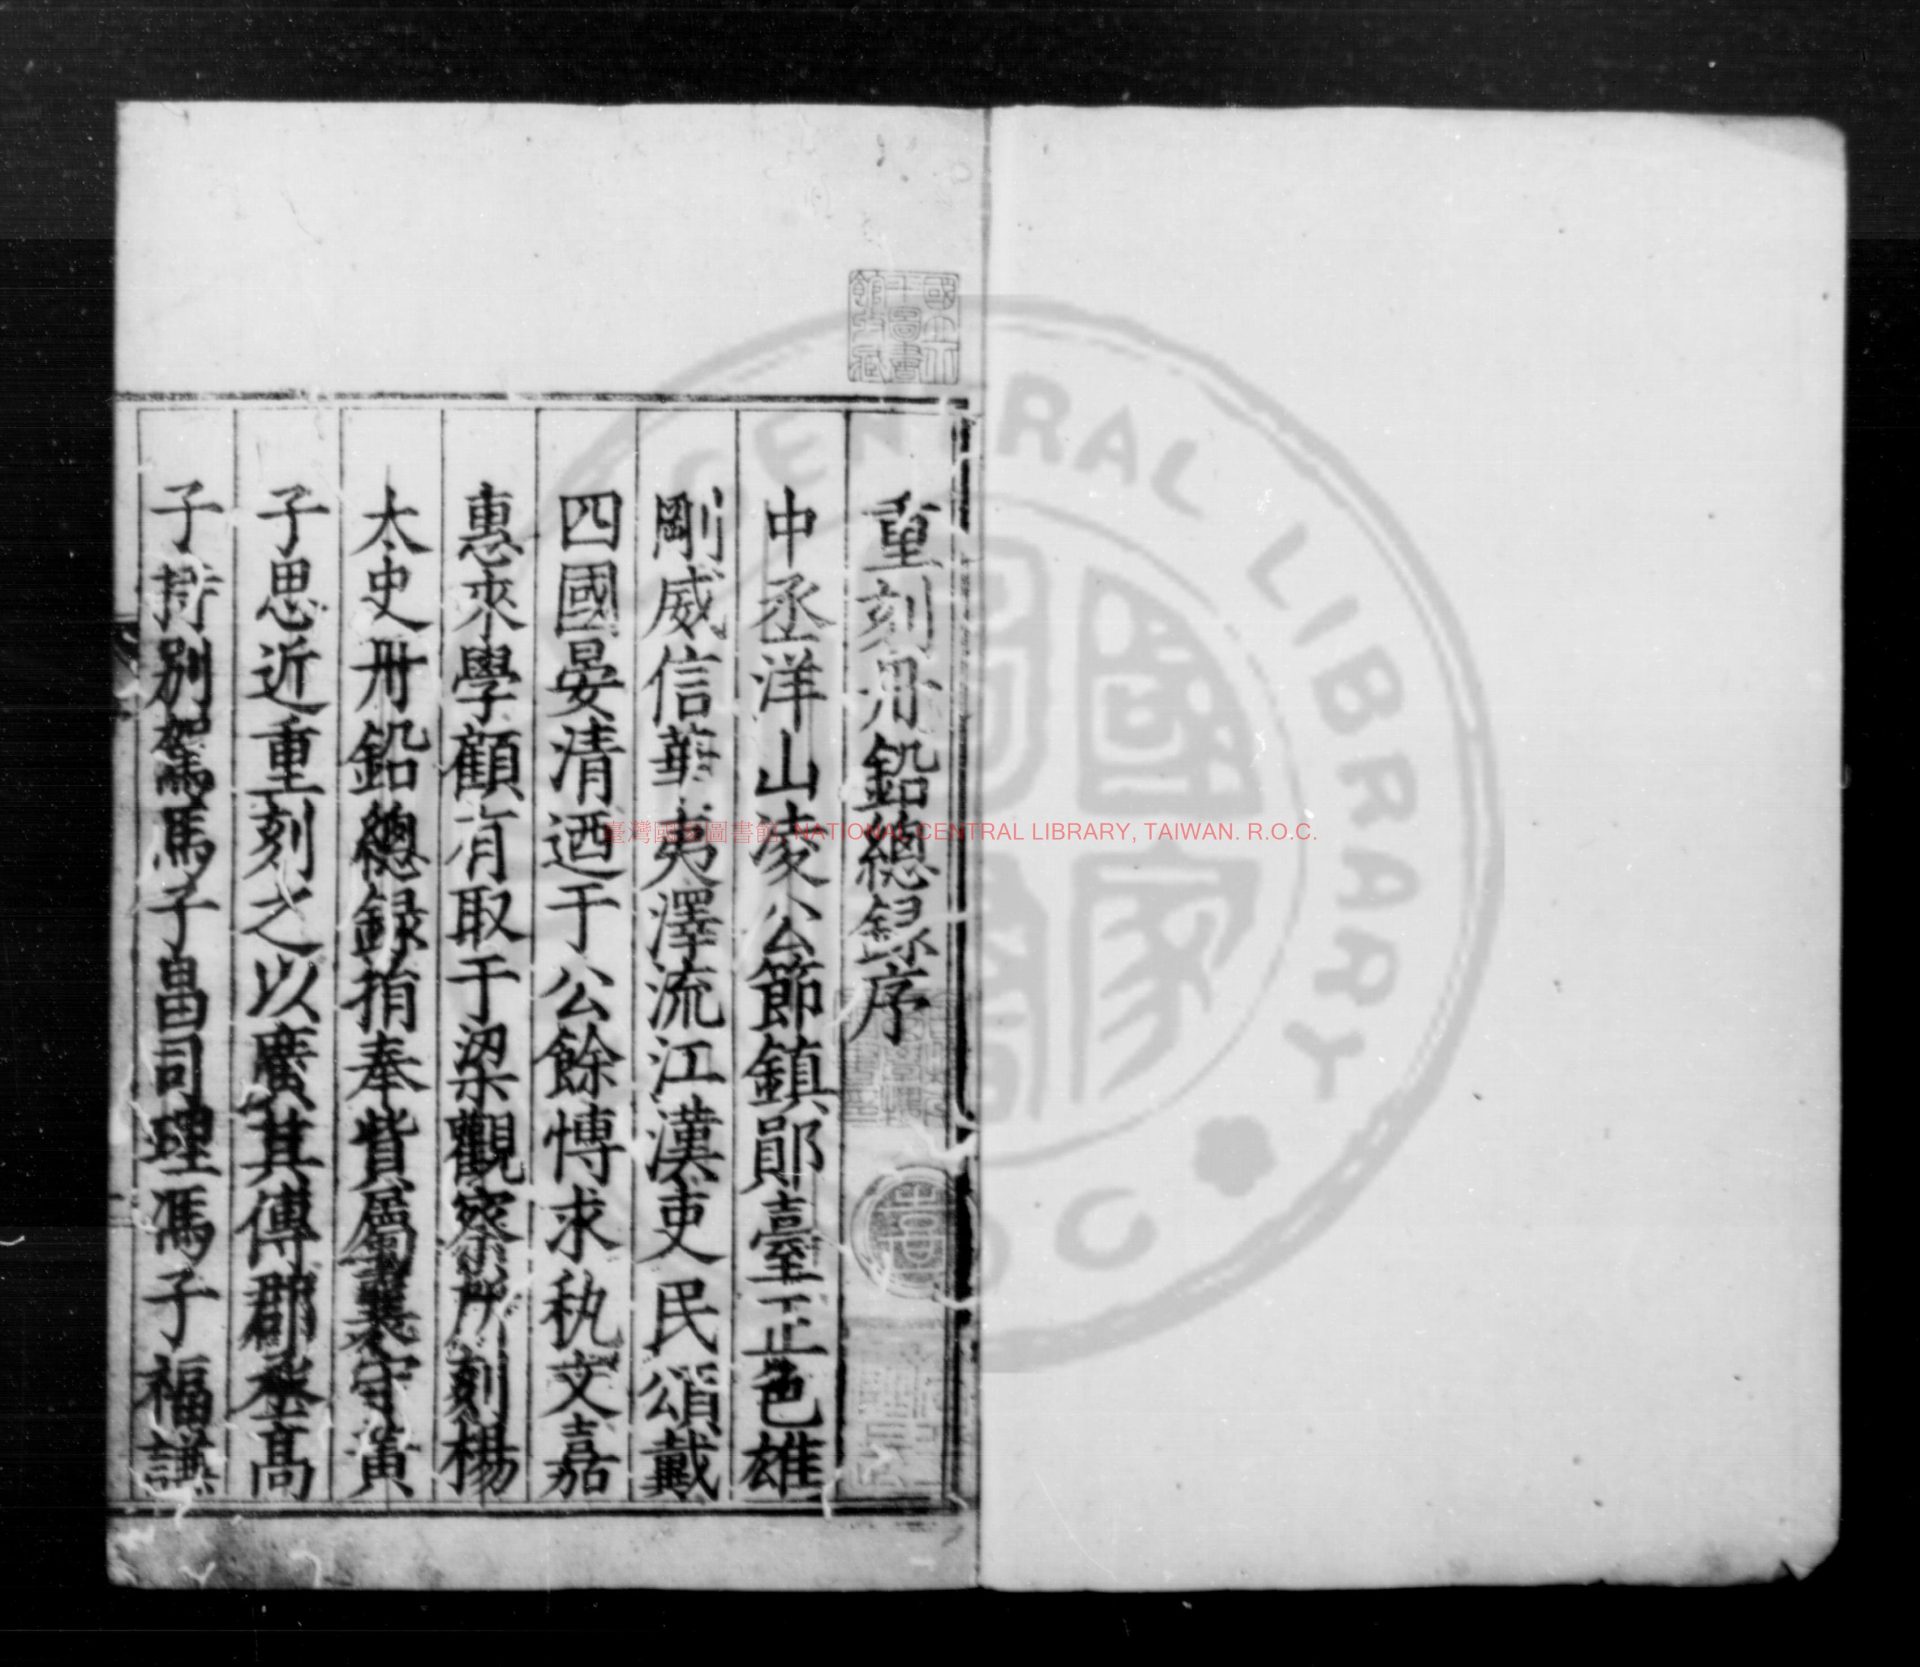 重刻丹鉛總錄序
中丞洋山凌公節鎮鄖臺正色雄
剛威信華夷澤流江漢吏民頌戴
四國晏清迺于公餘慱求秇文嘉
惠來學顧有取于梁觀察所刻楊
太史丹鉛總録捐奉貲屬襄守黃
子思近重刻之以廣其傳郡丞高
子持別駕馬子昌司理馮子福謙
國立中央圖書館收藏
臺灣國家圖書館, NATIONAL CENTRAL LIBRARY, TAIWAN. R.O.C.
CENTRAL LIBRARY